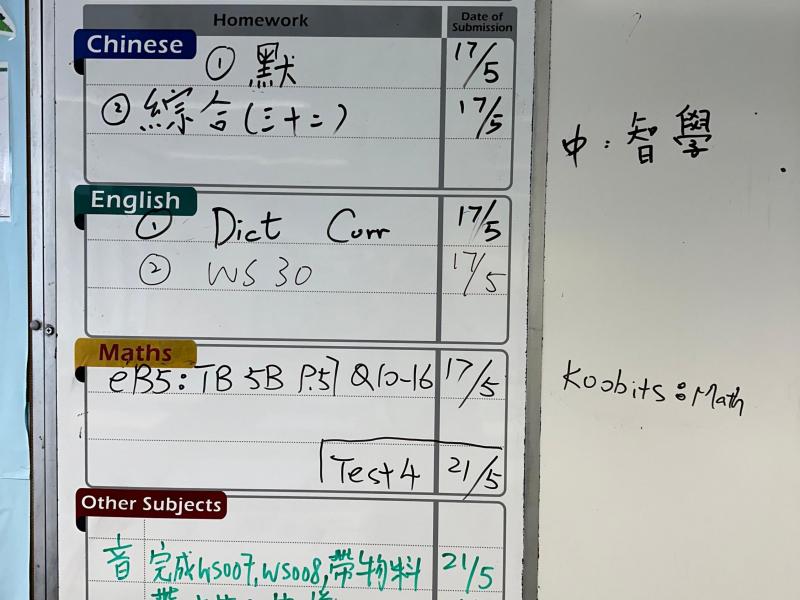 Homework Date of Submission
Chinese
① 默 17/5
② 綜合(三十二) 17/5
中:智學
English
① Dict Corr 17/5
② WS 30 17/5
Maths
eB5: TB 5B P.57 Q10-16 17/5
Koobits: Math
Test 4 21/5
Other Subjects
音 完成WS007, WS008, 帶物料 21/5